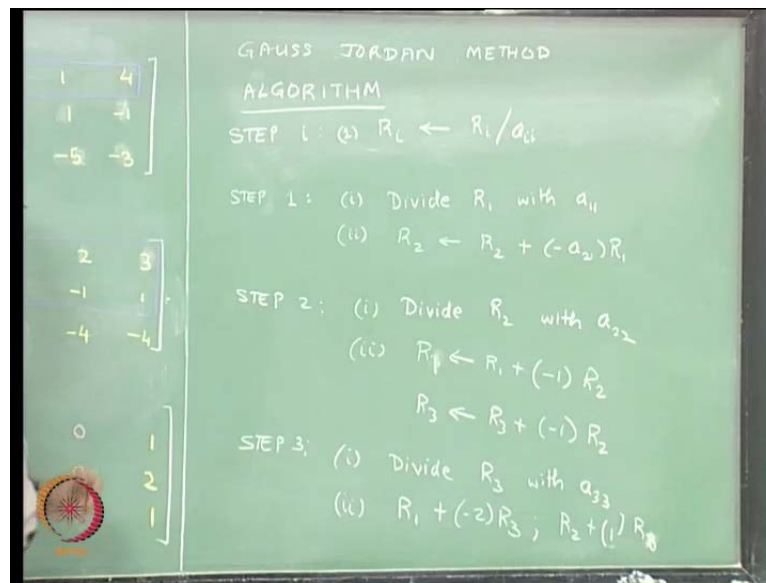 1 4
1 -1
-5 -3
2 3
-1 1
-4 -4
0 1
2
1
GAUSS JORDAN METHOD
ALGORITHM
STEP i : (i) Ri ← Ri/aii
STEP 1 : (i) Divide R1 with a11
(ii) R2 ← R2 + (-a21)R1
STEP 2 : (i) Divide R2 with a22
(ii) R1 ← R1 + (-1) R2
R3 ← R3 + (-1) R2
STEP 3: (i) Divide R3 with a33
(ii) R1 + (-2)R3 ; R2 + (1) R3